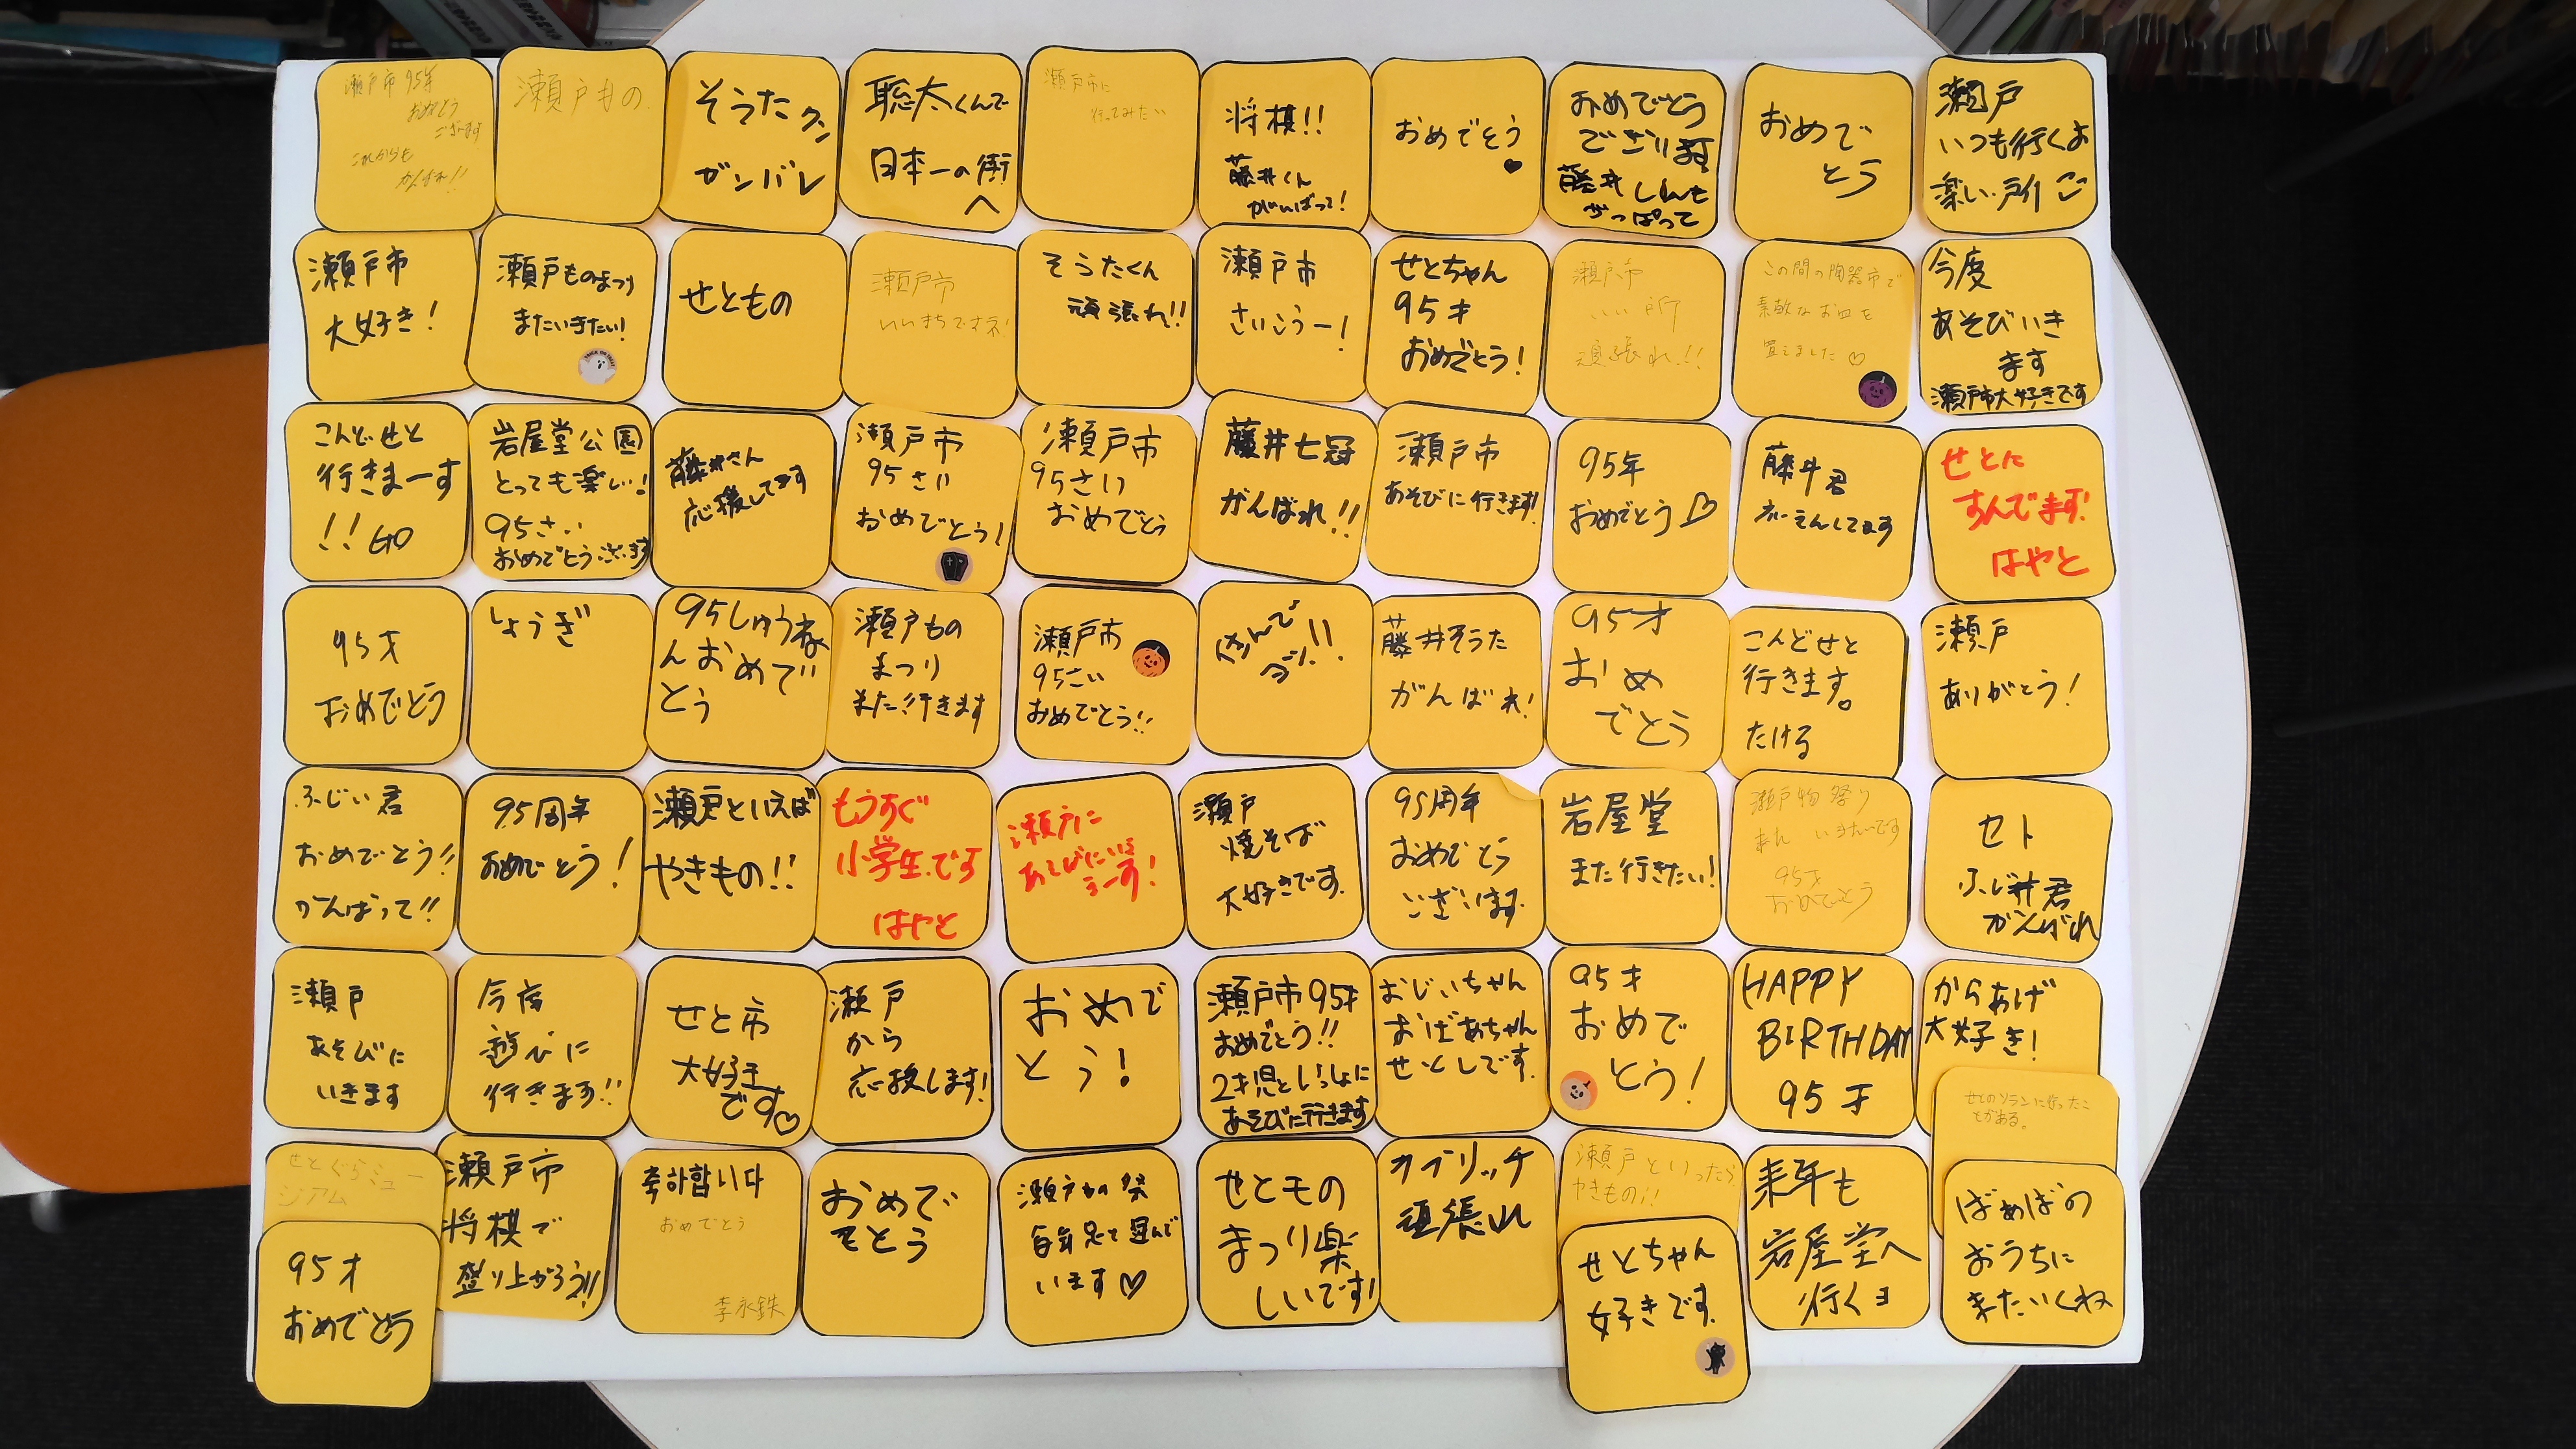 瀬戸市 95年
おめでとう
ございます
これからも
がんばれ!!
瀬戸もの
そうたクン
ガンバレ
聡太くんで
日本一の街
へ
瀬戸市に
行ってみたい
将棋!!
藤井くん
がんばって!
おめでとう
おめでとう
ございます
藤井
おめで
とう
瀬戸
いつも行くよ
楽しい所
瀬戸市
大好き!
瀬戸ものまつり
またいきたい!
せともの
瀬戸市
いいまちですネ!
そうたくん
頑張れ!!
瀬戸市
さいこうー!
せとちゃん
95才
おめでとう!
瀬戸市
いい所
頑張れ!!
この間の陶器市で
素敵なお皿を
買えました♡
今度
あそびいき
ます
瀬戸市大好きです
こんどせと
行きまーす
!! GO
岩屋堂公園
とっても楽しい!
95さい
おめでとうございます
藤井さん
応援してます
瀬戸市
95さい
おめでとう!
瀬戸市
95さい
おめでとう
藤井七冠
がんばれ!!
瀬戸市
あそびに行きます!
95年
おめでとう♡
藤井君
おーえんしてます
せとに
すんでます!
はやと
95才
おめでとう
しょうぎ
95しゅうね
んおめで
とう
瀬戸もの
まつり
また行きます
瀬戸市
95さい
おめでとう!!
藤井そうた
がんばれ!
95才
おめ
でとう
こんどせと
行きます。
たける
瀬戸
ありがとう!
ふじい君
おめでとう!!
がんばって!!
95周年
おめでとう!
瀬戸といえば
やきもの!!
もうすぐ
小学生です
はやと
瀬戸に
瀬戸
焼そば
大好きです.
95周年
おめでとう
ございます.
岩屋堂
また行きたい!
瀬戸物祭り
95才
おめでとう
セト
ふじ井君
がんばれ
瀬戸
あそびに
いきます
今度
遊びに
行きます!!
せと市
大好き
です♡
瀬戸
から
応援します!
おめで
とう!
瀬戸市95才
おめでとう!!
2才児といっしょに
あそびに行きます
おじいちゃん
おばあちゃん
せとしです.
95才
おめで
とう!
HAPPY
BIRTHDAY
95才
からあげ
大好き!
せとのソランに行ったこ
とがある。
せとぐらミュー
ジアム
95才
おめでとう
瀬戸市
将棋で
盛り上がろう!!
축하합니다
おめでとう
李永鉄
おめで
とう
瀬戸もの祭
毎年兄で遊んで
います♡
せともの
まつり楽
しいです!
カブリッチ
頑張れ
瀬戸といったら
やきもの!!
せとちゃん
好きです.
来年も
岩屋堂へ
行くヨ
ばぁばの
おうちに
またいくね